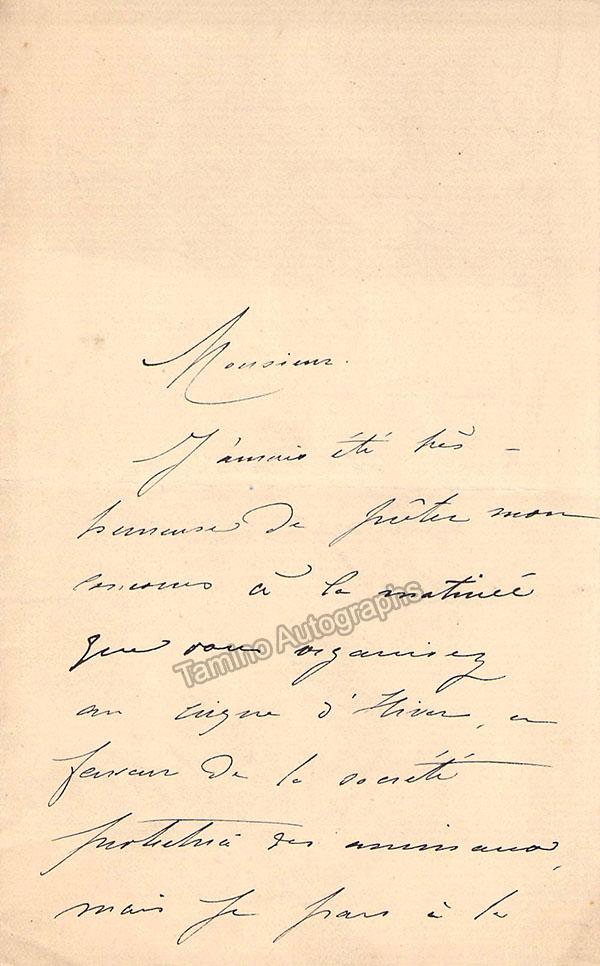 Monsieur.
J'aurais été très -
heureuse de prêter mon
concours à la matinée
que vous organisez
Tamino Autographs
au cirque d'Hiver, en
faveur de la société
protectrice des animaux,
mais je pars à la